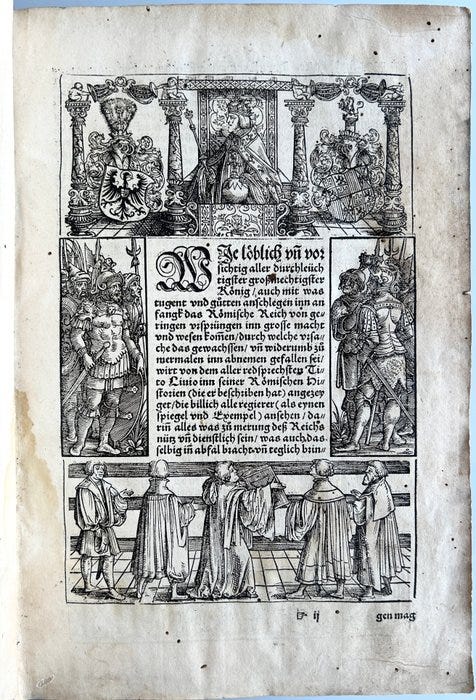 WJe löblich vñ vor
sichtig aller durchleüch
tigster großmechtigster
König / auch mit was
tugent vnd gütten anschlegen inn an
fangk das Römische Reich von ge-
ringen vrsprüngen inn grosse macht
vnd wesen kom̃en / durch welche vrsa-
che das gewachssen / vñ widerumb zů
mermalen inn abnemen gefallen sei /
wirt von dem aller redsprechsten Ti-
to Liuio inn seiner Römischen Hi-
storien (die er beschriben hat) angezey
get / die billich alle regierer (als eynen
spiegel vnd Exempel) ansehen / da-
rin̄ alles was zů merung deß Reichs
nütz vñ dienstlich sein / was auch das
selbig in̄ abfal bracht vñ teglich brin-
ij
gen mag